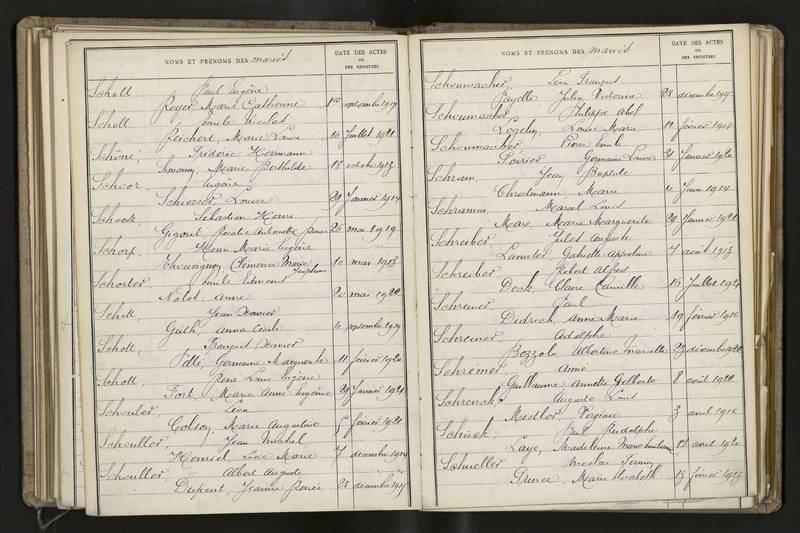 NOMS ET PRÉNOMS DES mariés
DATE DES ACTES
OU
DES REGISTRES
Scholl, Paul Eugène
Royer, Marie Catherine 1er septembre 1917
Scholl, Emile Nicolas
Reichert, Marie Louise 16 juillet 1921
Schöne, Frédéric Hermann
Simonin, Marie Berthilde 18 octobre 1913
Schoor, Eugène
Schiesser, Louise 29 Janvier 1914
Schook, Sébastien Henri
Gigout, Rosalie Antoinette Renée 26 mai 1919
Schorp, Henri Marie Eugène
Thouvignon, Clémence Marie Joséphine 10 mai 1913
Schorter, Emile Edmond
Nolot, Anne 20 mai 1922
Schott, Jean Xavier
Guth, Anna Cécile 4 septembre 1919
Schott, François Xavier
Tilli, Germaine Marguerite 11 février 1920
Schott, René Louis Eugène
Fort, Marie Anne Eugénie 29 Janvier 1921
Schouler, Léon
Colson, Marie Augustine 5 février 1921
Schouller, Jean Michel
Hensiel, Marie 7 décembre 1914
Schouller, Albert Auguste
Dupont, Jeanne Renée 24 décembre 1917
NOMS ET PRÉNOMS DES mariés
DATE DES ACTES
OU
DES REGISTRES
Schoumacher, Léon François
Payelle, Julia Victorine 24 décembre 1917
Schoumacher, Philippe Abel
Logelin, Louise Marie 12 février 1914
Schoumacher, Pierre Emile
Poirier, Germaine Louise 21 Janvier 1920
Schram, Jean Baptiste
Christmann, Marie 4 Juin 1914
Schramm, Marcel Louis
Max, Marie Marguerite 29 Janvier 1921
Schreiber, Jules Auguste
Lanster, Gabrielle Appoline 7 août 1913
Schreiber, Robert Alfred
Dock, Claire Camille 16 Juillet 1921
Schreiner, Paul
Didrich, Anne Marie 19 février 1910
Schreiner, Adolphe
Bozzolo, Albertine Marcelle 29 décembre 1920
Schremer, Aimé
Guillaume, Annette Gilberte 8 août 1922
Schrenck, Auguste Louis
Midlor, Virginie 3 avril 1916
Schück, Paul Rudolphe
Laye, Madeleine Marie 17 avril 1920
Schueller, Nicolas Firmin
Prince, Marie Elisabeth 15 février 1913